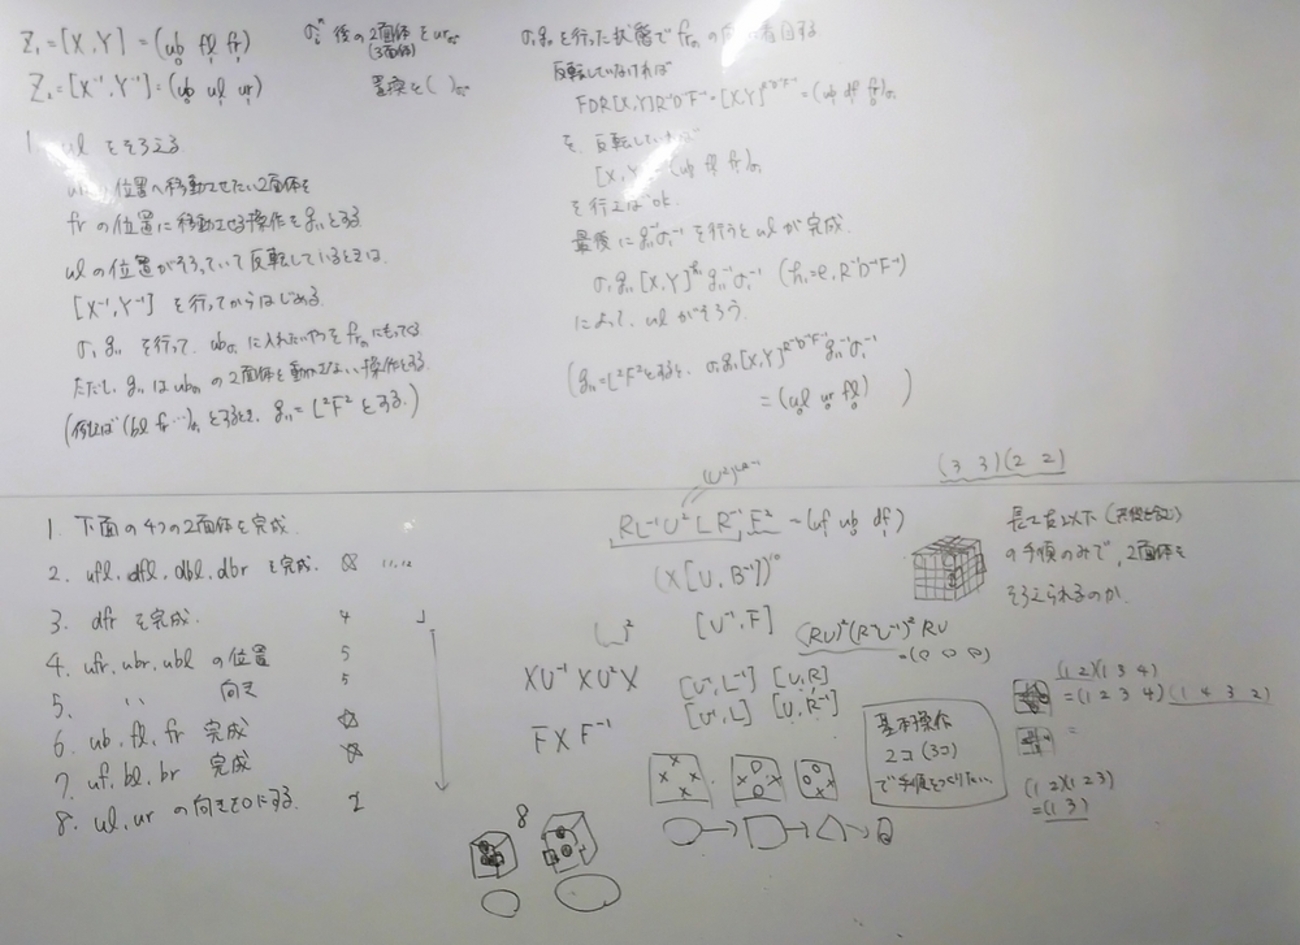 Z₁ = [X, Y] = (ub fl fr)
Z₂ = [X⁻¹, Y⁻¹] = (ub ul ur)
後の2面体を
(3面体)
置換を ( )
1. ulをそろえる
位置へ移動させたい2面体を
frの位置に移動させる操作をg₁₁とする
ulの位置がそろっていて反転しているときは、
[X⁻¹, Y⁻¹] を行ってからはじめる.
σ₁g₁₁ を行って、ubσ₁に入れたいやつをfrσ₁にもってくる
ただし、g₁₁はubσ₁の2面体を動かさない操作とする.
(例えば(bl fr …)σ₁とするとき、g₁₁ = L²F²とする.)
を行った状態で
反転していなければ
FDR[X,Y]R⁻¹D⁻¹F⁻¹ = [X,Y] = (ub df fr)σ₁
を、反転していれば
[X, Y (ub fl fr)σ₁
を行えばok.
最後にg₁₁⁻¹σ₁⁻¹を行うとulが完成.
σ₁g₁₁[X,Y]ʰ¹g₁₁⁻¹σ₁⁻¹ (h₁=e, R⁻¹D⁻¹F⁻¹)
によって、ulがそろう.
(g₁₁=L²F²とすると、σ₁g₁₁[X,Y]^R⁻¹D⁻¹F⁻¹ g₁₁⁻¹σ₁⁻¹
= (ul ur fl) )
(3 3)(2 2)
1. 下面の4つの2面体を完成.
2. ufl, dfl, dbl, dbr を完成. ☆ 11,12
3. dfr を完成. 4
4. ufr, ubr, ubl の位置 5
5. 〃 向き 5
6. ub, fl, fr 完成 ☆
7. uf, bl, br 完成 ☆
8. ul, ur の向きを0にする. 2
RL⁻¹U²LR⁻¹F² = (uf ub df)
(X[U, B⁻¹])¹⁰
( )² [U⁻¹, F]
(RU)²(R⁻¹U⁻¹)²RU
XU⁻¹XU²X
[U⁻¹, L⁻¹] [U, R]
[U, R⁻¹]
FXF⁻¹
基本操作
2コ(3コ)
で手順をつくりたい.
8
の手順のみで、2面体を
そろえられるのか.
(1 2)(1 3 4)
= (1 2 3 4)(1 4 3 2)
=
(1 2)(1 2 3)
= (1 3)